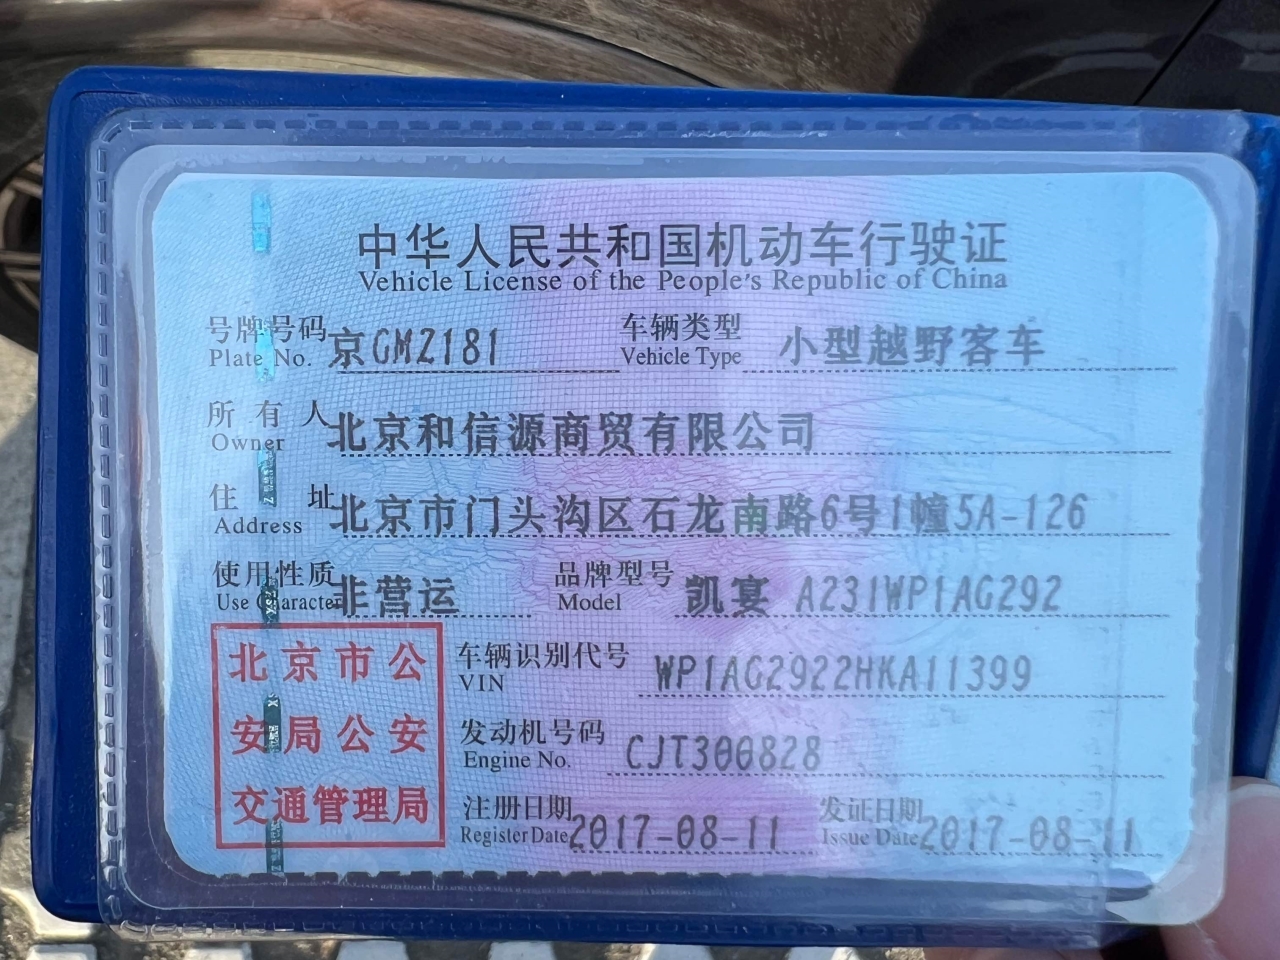 中华人民共和国机动车行驶证
Vehicle License of the People's Republic of China
号牌号码 京GM2181 车辆类型 小型越野客车
Plate No. Vehicle Type
所有人 北京和信源商贸有限公司
Owner
住址 北京市门头沟区石龙南路6号1幢5A-126
Address
使用性质 非营运 品牌型号 凯宴 A231WP1AG292
Use Character Model
北京市公
安局公安
交通管理局
车辆识别代号 WP1AG2922HKA11399
VIN
发动机号码 CJT300828
Engine No.
注册日期 2017-08-11 发证日期 2017-08-11
Register Date Issue Date